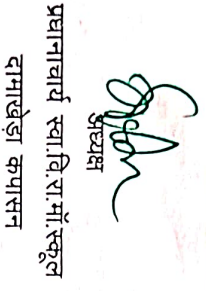 अध्यक्ष
प्रधानाचार्य स्वा.वि.रा.मॉ.स्कूल
दामाखेड़ा कपासन